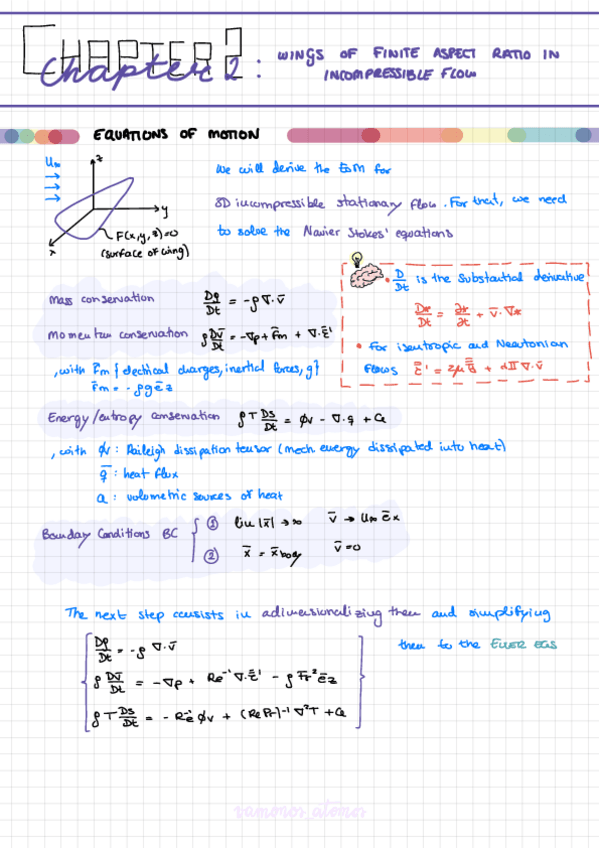 CHAPTER 2
Chapter 2: WINGS OF FINITE ASPECT RATIO IN
INCOMPRESSIBLE FLOW
EQUATIONS OF MOTION
U∞
z
y
x
F(x,y,z)=0
(surface of wing)
We will derive the EoM for
3D incompressible stationary flow. For that, we need
to solve the Navier Stokes' equations
• D/Dt is the substantial derivative
D*/Dt = ∂*/∂t + v̄·∇*
• For isentropic and Newtonian
flows
Mass conservation Dρ/Dt = -ρ∇·v̄
Momentum conservation ρ Dv̄/Dt = -∇p + F̄m + ∇·τ̄'
, with F̄m { electrical charges, inertial forces, g }
F̄m = -ρg ēz
Energy/entropy conservation ρT Ds/Dt = ϕv - ∇·q + Q
, with ϕv: Raileigh dissipation tensor (mech. energy dissipated into heat)
q̄: heat flux
Q: volumetric sources of heat
Boundary Conditions BC
① lim |x̄| → ∞ v̄ → U∞ ēx
② x̄ = x̄body v̄ = 0
The next step consists in adimensionalizing them and simplifying
them to the EULER EQS
Dρ/Dt = -ρ ∇·v̄
ρ Dv̄/Dt = -∇p + Re⁻¹ ∇·τ̄' - ρ Fr⁻² ēz
ρT Ds/Dt = - Re⁻¹ ϕv + (RePr)⁻¹ ∇²T + Q
vamonos_atomos